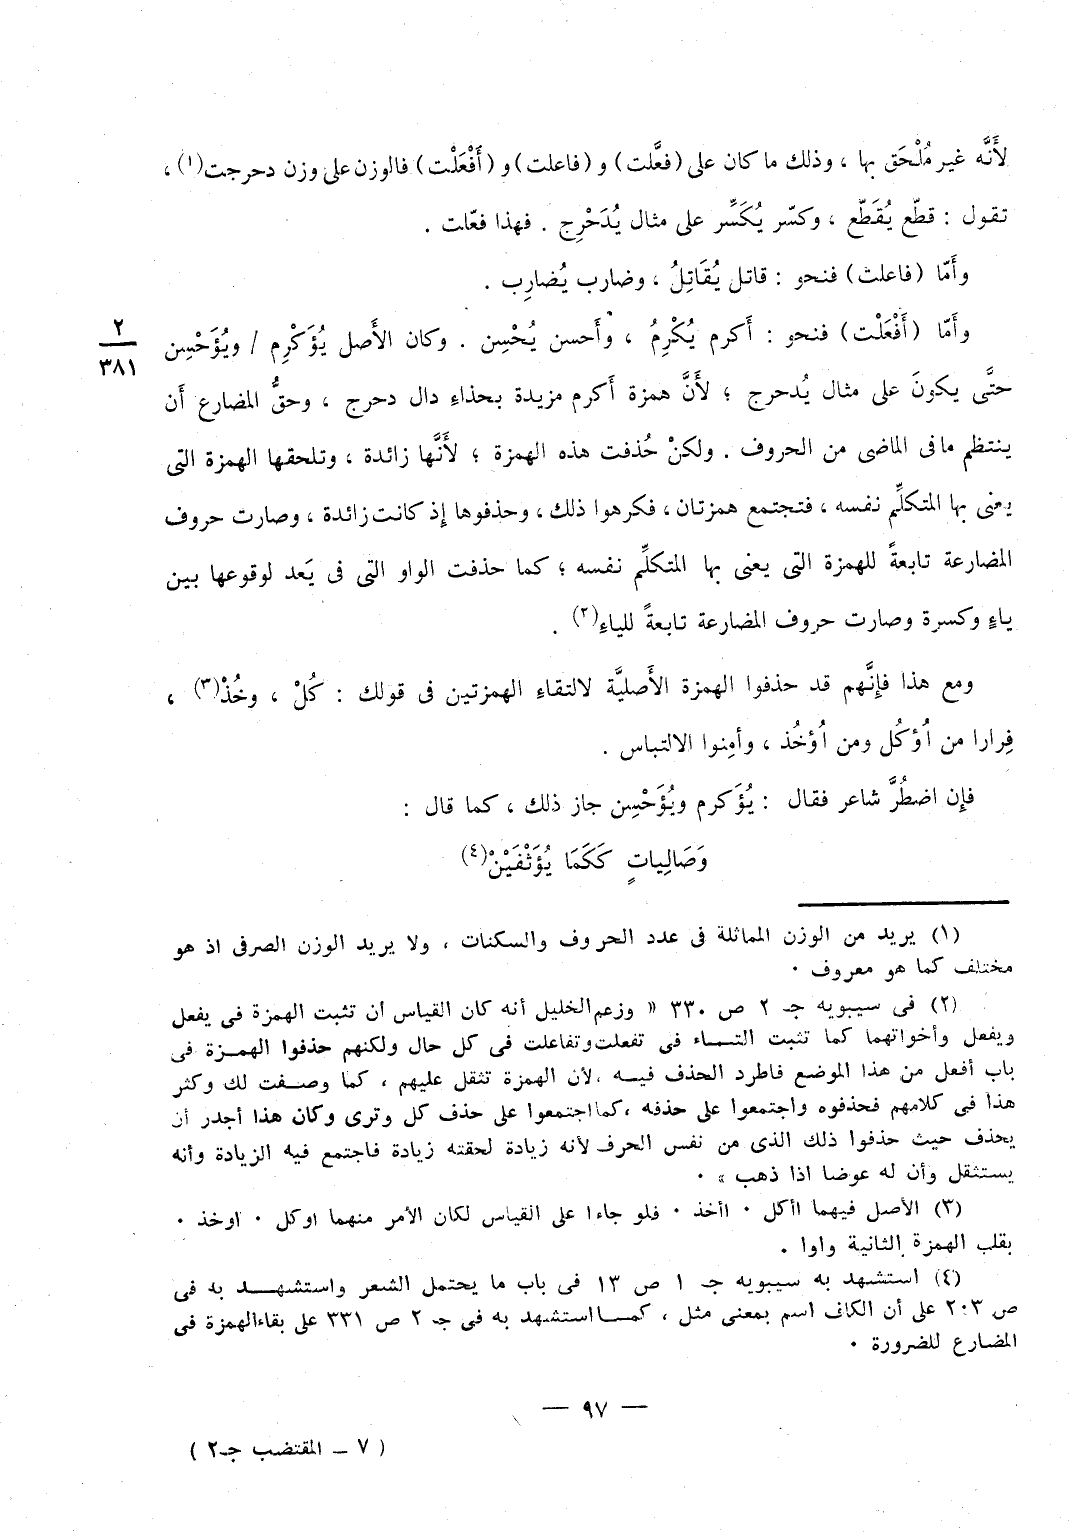 لأَنَّه غير مُلْحَق بها ، وذلك ما كان على (فعَّلت) و (فاعلت) و (أَفْعَلْت) فالوزن على وزن دحرجت(١) ،
تقول : قطّع يُقَطّع ، وكسّر يُكَسِّر على مثال يُدَحْرِج . فهذا فعّلت .
وأَمّا (فاعلت) فنحو : قاتل يُقَاتِلُ ، وضارب يُضارِب .
وأَمّا (أَفْعَلْت) فنحو : أَكرم يُكْرِمُ ، وأَحسن يُحْسِن . وكان الأَصل يُؤَكْرِم / ويُؤَحْسِن
٢
٣٨١
حتَّى يكونَ على مثال يُدحرج ؛ لأَنَّ همزة أَكرم مزيدة بحذاءِ دال دحرج ، وحقُّ المضارع أَن
ينتظم ما فى الماضى من الحروف . ولكنْ حُذفت هذه الهمزة ؛ لأَنَّها زائدة ، وتلحقها الهمزة التى
يعنى بها المتكلِّم نفسه ، فتجتمع همزتان ، فكرهوا ذلك ، وحذفوها إِذ كانت زائدة ، وصارت حروف
المضارعة تابعةً للهمزة التى يعنى بها المتكلِّم نفسه ؛ كما حذفت الواو التى فى يَعد لوقوعها بين
ياءٍ وكسرة وصارت حروف المضارعة تابعةً للياءِ(٢) .
ومع هذا فإِنَّهم قد حذفوا الهمزة الأَصليَّة لالتقاء الهمزتين فى قولك : كُلْ ، وخُذْ(٣) ،
فِرارا من اُؤكُل ومن اُؤخُذ ، وأمِنوا الالتباس .
فإِن اضطُرَّ شاعر فقال : يُؤَكرم ويُؤَحْسِن جاز ذلك ، كما قال :
وَصَالِيباتٍ كَكَمَا يُؤَثْفَيْنْ(٤)
(١) يريد من الوزن المماثلة فى عدد الحروف والسكنات ، ولا يريد الوزن الصرفى اذ هو
مختلف كما هو معروف ٠
(٢) فى سيبويه جـ ٢ ص ٣٣٠ « وزعم الخليل أنه كان القياس أن تثبت الهمزة فى يفعل
ويفعل وأخواتهما كما تثبت التـاء فى تفعلت وتفاعلت فى كل حال ولكنهم حذفوا الهمـزة فى
باب أفعل من هذا الموضع فاطرد الحذف فيـه ، لأن الهمزة تثقل عليهم ، كما وصـفت لك وكثر
هذا فى كلامهم فحذفوه واجتمعوا على حذفه ، كما اجتمعوا على حذف كل وترى وكان هذا أجدر أن
يحذف حيث حذفوا ذلك الذى من نفس الحرف لأنه زيادة لحقته زيادة فاجتمع فيه الزيادة وأنه
يستثقل وأن له عوضا اذا ذهب » ٠
(٣) الأصل فيهما اأكل ٠ اأخذ ٠ فلو جاءا على القياس لكان الأمر منهما اوكل ٠ اوخذ ٠
بقلب الهمزة الثانية واوا ٠
(٤) استشهد به سيبويه جـ ١ ص ١٣ فى باب ما يحتمل الشعر واستشهـد به فى
ص ٢٠٣ على أن الكاف اسم بمعنى مثل ، كمـا استشهد به فى جـ ٢ ص ٣٣١ على بقاء الهمزة فى
المضارع للضرورة ٠
— ٩٧ —
( ٧ ــ المقتضب جـ٢ )